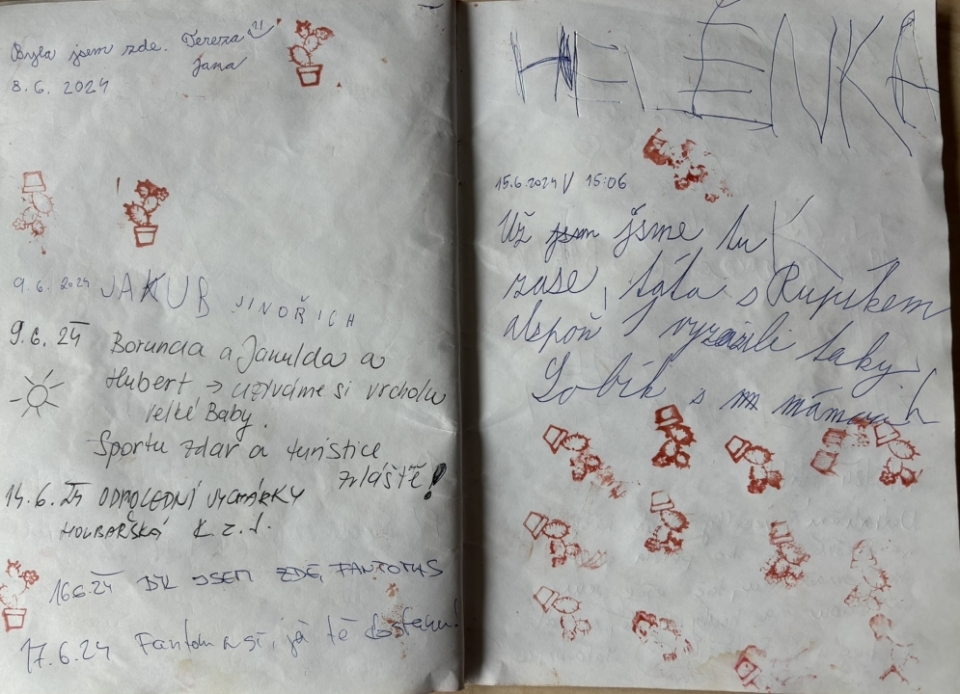 Byla jsem zde. Tereza
Jana
8. 6. 2024
9. 6. 2024 JAKUB JINOŘICH
9. 6. 24 Borůvka a Jamulda a
Hubert → užíváme si vrcholu
velké Baby.
Sportu zdar a turistice
zvláště!
14. 6. 24 ODPOLEDNÍ VYCHÁZKY
HOUBAŘSKÁ K. z. J.
16.6.24 BYL JSEM ZDE, FANTOMAS
17. 6. 24 Fantomasi, já tě dostanu!
HELENKA
15.6.2024 / 15:06
Už jsme tu
zase, táta s Rupíkem
Aspoň vyrazili taky.
Tobík s mámou